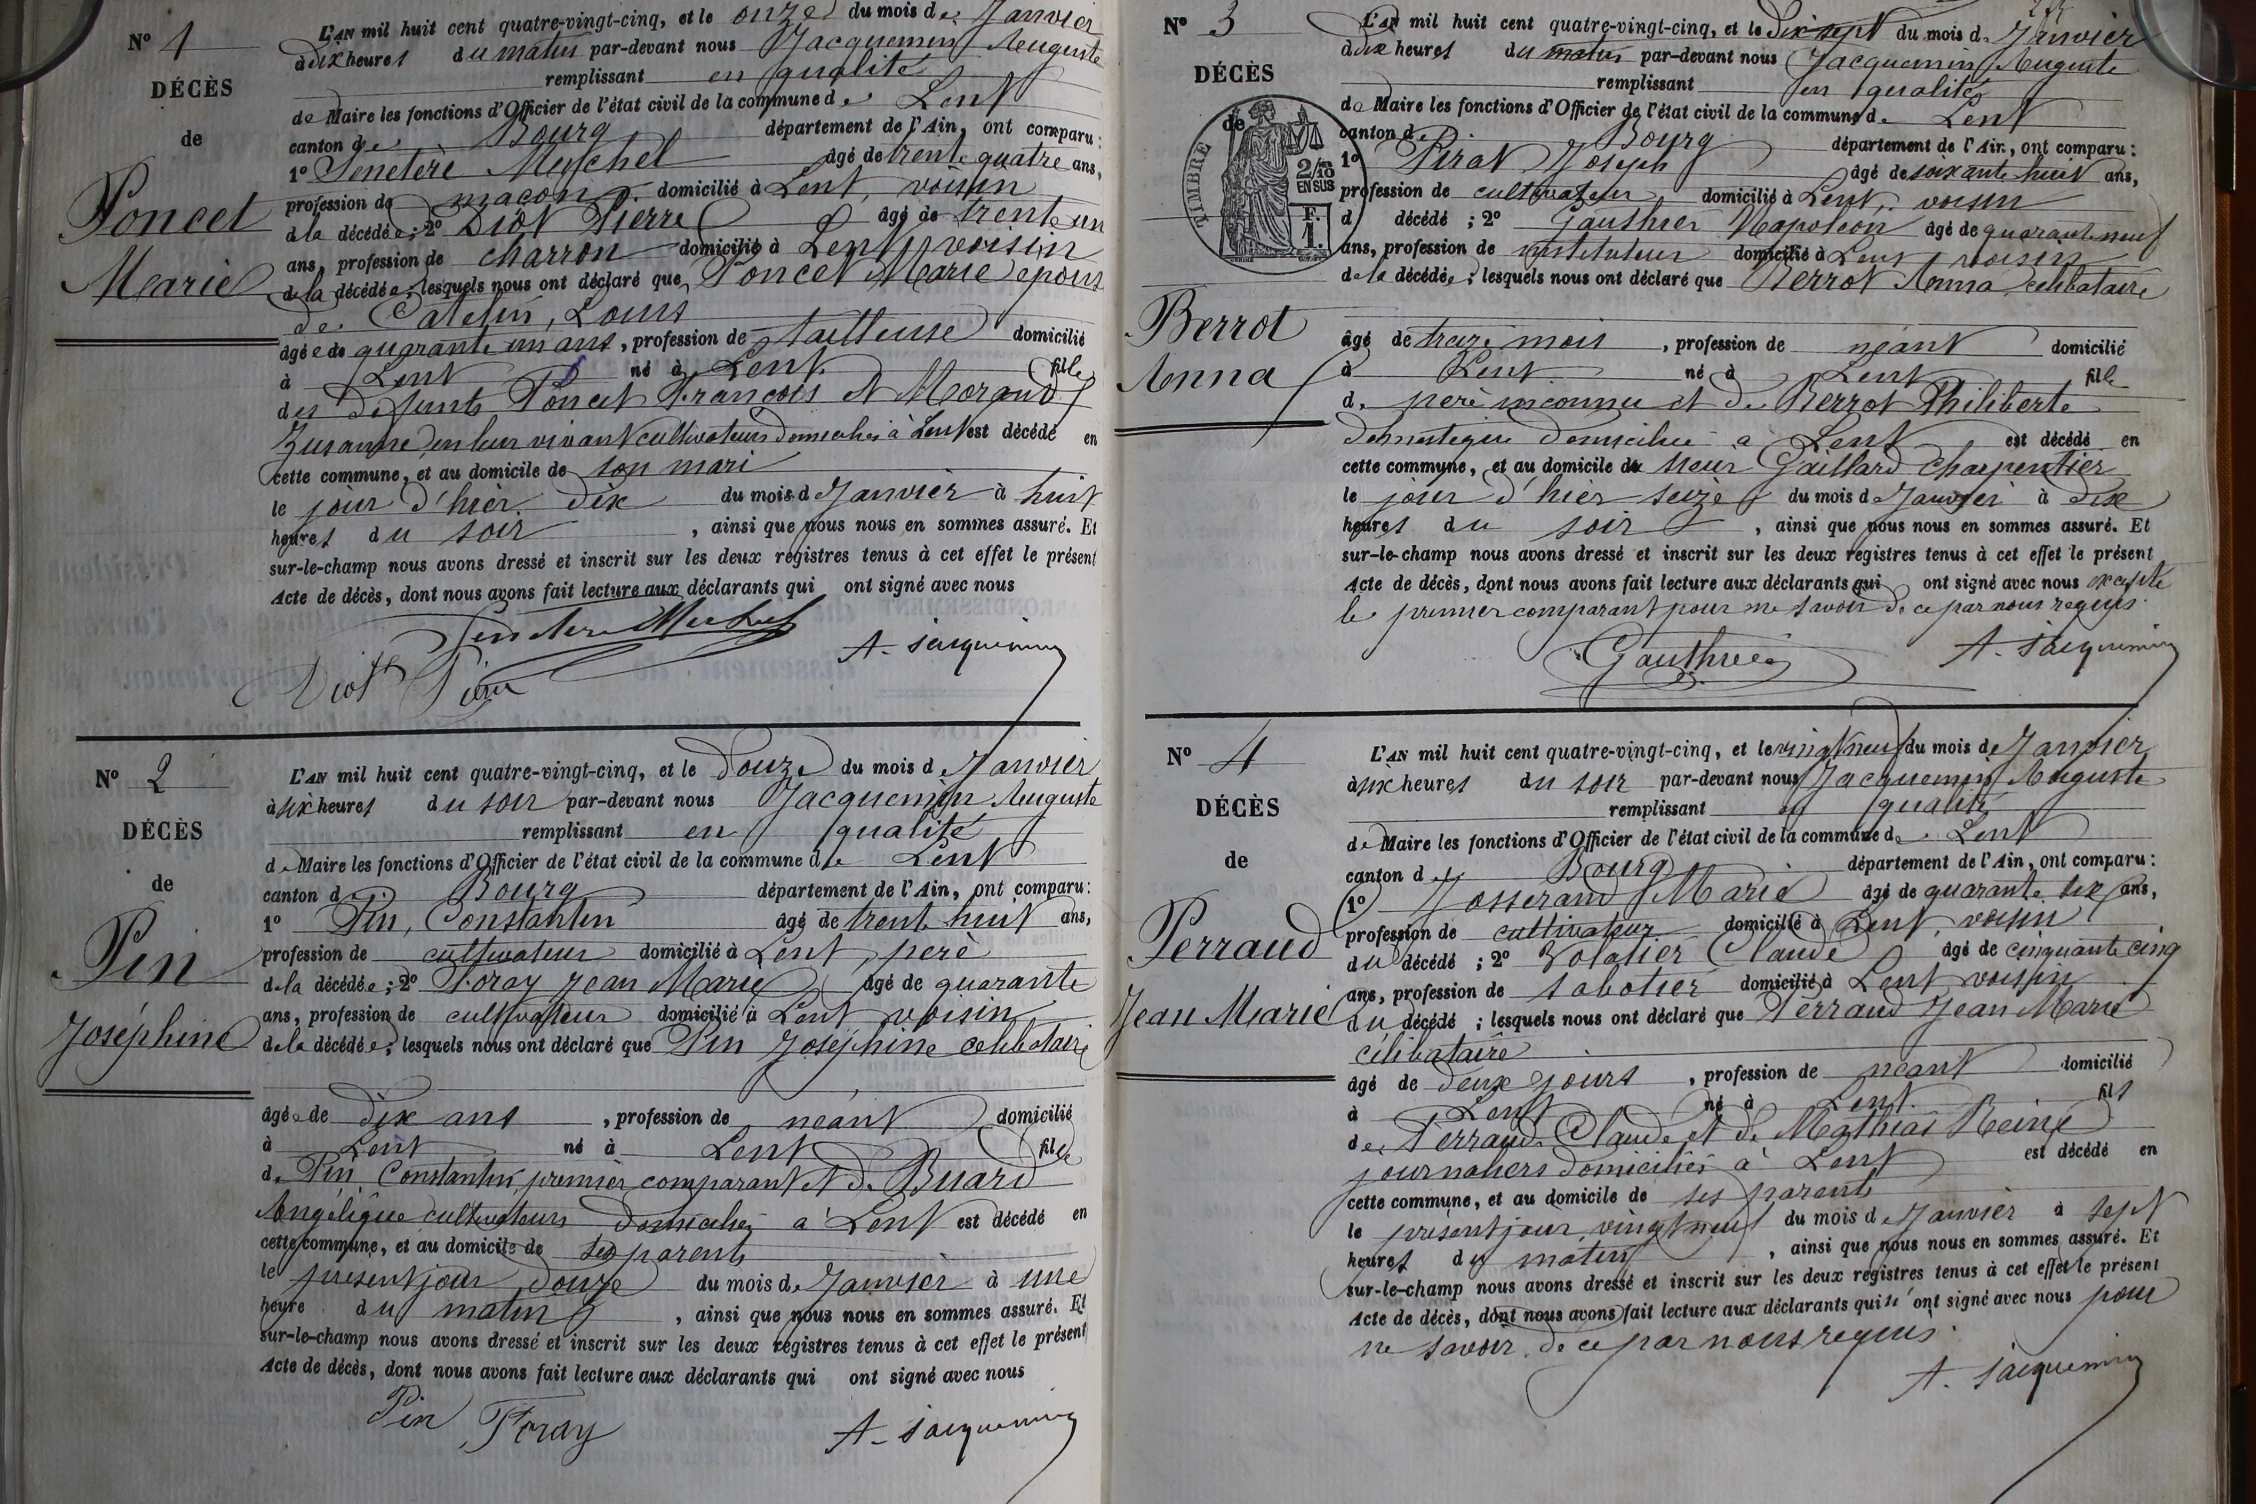 N° 1
DÉCÈS
de
Poncet
Marie
L'AN mil huit cent quatre-vingt-cinq, et le onze du mois de Janvier
à dix heures du matin par-devant nous Jacquemin Auguste
remplissant en qualité
de Maire les fonctions d'Officier de l'état civil de la commune de Lent
canton de Bourg département de l'Ain, ont comparu :
1° Senetère Michel âgé de trente quatre ans,
profession de maçon domicilié à Lent, voisin
de la décédée ; 2° Diot Pierre âgé de trente un
ans, profession de charron domicilié à Lent, voisin
de la décédée ; lesquels nous ont déclaré que Poncet Marie épouse
de Catelin, Louis
âgée de quarante un ans, profession de tailleuse domicilié
à Lent né à Lent fille
des défunts Poncet François et Morand
Zusanne en leur vivant cultivateurs domiciliés à Lent est décédé en
cette commune, et au domicile de son mari
le jour d'hier dix du mois de Janvier à huit
heures du soir, ainsi que nous nous en sommes assuré. Et
sur-le-champ nous avons dressé et inscrit sur les deux registres tenus à cet effet le présent
Acte de décès, dont nous avons fait lecture aux déclarants qui ont signé avec nous
Senetère Michel
Diot Pierre A. Jacquemin
N° 2
DÉCÈS
de
Pin
Joséphine
L'AN mil huit cent quatre-vingt-cinq, et le douze du mois de Janvier
à six heures du soir par-devant nous Jacquemin Auguste
remplissant en qualité
de Maire les fonctions d'Officier de l'état civil de la commune de Lent
canton de Bourg département de l'Ain, ont comparu :
1° Pin, Constantin âgé de trente huit ans,
profession de cultivateur domicilié à Lent, père
de la décédée ; 2° Foray Jean Marie âgé de quarante
ans, profession de cultivateur domicilié à Lent voisin
de la décédée ; lesquels nous ont déclaré que Pin Joséphine célibataire
âgée de dix ans, profession de néant domicilié
à Lent né à Lent fille
de Pin, Constantin, premier comparant et de Buard
Angélique cultivateurs domiciliés à Lent est décédé en
cette commune, et au domicile de ses parents
le présent jour, douze du mois de Janvier à une
heure du matin, ainsi que nous nous en sommes assuré. Et
sur-le-champ nous avons dressé et inscrit sur les deux registres tenus à cet effet le présent
Acte de décès, dont nous avons fait lecture aux déclarants qui ont signé avec nous
Pin Foray A. Jacquemin
N° 3
DÉCÈS
de
TIMBRE
2/10
EN SUS
F.
1.
Berrot
Anna
L'AN mil huit cent quatre-vingt-cinq, et le dix-sept du mois de Janvier
à dix heures du matin par-devant nous Jacquemin Auguste
remplissant en qualité
de Maire les fonctions d'Officier de l'état civil de la commune de Lent
canton de Bourg département de l'Ain, ont comparu :
1° Pirat Joseph âgé de soixante huit ans,
profession de cultivateur domicilié à Lent, voisin
d décédé ; 2° Gauthier Napoléon âgé de quarante neuf
ans, profession de instituteur domicilié à Lent voisin
de la décédée ; lesquels nous ont déclaré que Berrot Anna, célibataire
âgé de treize mois, profession de néant domicilié
à Lent né à Lent fille
de père inconnu et de Berrot Philiberte
domestique domiciliée à Lent est décédé en
cette commune, et au domicile de sieur Gaillard charpentier
le jour d'hier seize du mois de Janvier à dix
heures du soir, ainsi que nous nous en sommes assuré. Et
sur-le-champ nous avons dressé et inscrit sur les deux registres tenus à cet effet le présent
Acte de décès, dont nous avons fait lecture aux déclarants qui ont signé avec nous excepté
le premier comparant pour ne savoir de ce par nous requis.
Gauthier A. Jacquemin
N° 4
DÉCÈS
de
Perraud
Jean Marie
L'AN mil huit cent quatre-vingt-cinq, et le vingt neuf du mois de Janvier
à six heures du soir par-devant nous Jacquemin Auguste
remplissant en qualité
de Maire les fonctions d'Officier de l'état civil de la commune de Lent
canton de Bourg département de l'Ain, ont comparu :
1° Josserand Marie âgé de quarante six ans,
profession de cultivateur domicilié à Lent, voisin
du décédé ; 2° Volatier Claude âgé de cinquante cinq
ans, profession de sabotier domicilié à Lent voisin
du décédé ; lesquels nous ont déclaré que Perraud Jean Marie
célibataire
âgé de deux jours, profession de néant domicilié
à Lent né à Lent fils
de Perraud Claude et de Mathias Reine
journaliers domiciliés à Lent est décédé en
cette commune, et au domicile de ses parents
le présent jour, vingt neuf du mois de Janvier à sept
heures du matin, ainsi que nous nous en sommes assuré. Et
sur-le-champ nous avons dressé et inscrit sur les deux registres tenus à cet effet le présent
Acte de décès, dont nous avons fait lecture aux déclarants qui n'ont signé avec nous pour
ne savoir, de ce par nous requis.
A. Jacquemin